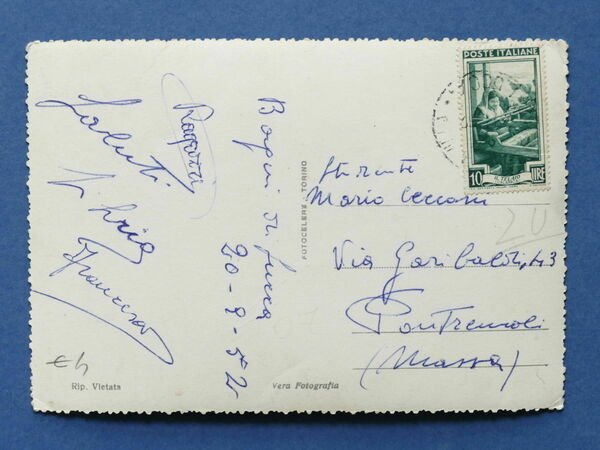 POSTE ITALIANE
10 IL TELAIO LIRE
Ragazzi
Saluti
Francesco
Bagni di Lucca
20-8-52
FOTOCELERE - TORINO
Studente
Mario Cecconi
Via Garibaldi, 43
Pontremoli
(Massa)
20
€4
Rip. Vietata
Vera Fotografia